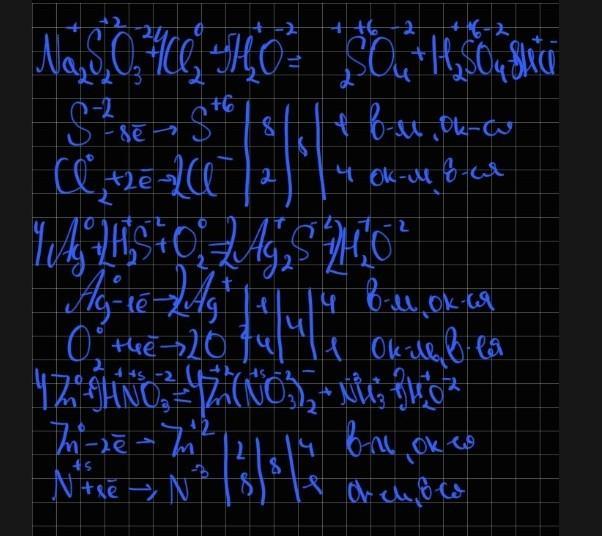 Na₂⁺S₂⁺²O₃⁻² + 4Cl₂⁰ + 5H₂⁺O⁻² = Na₂⁺S⁺⁶O₄⁻² + H₂⁺S⁺⁶O₄⁻² + 8H⁺Cl⁻
S⁻² -8ē → S⁺⁶ | 8 | 8 | 1 в-ль, ок-ся
Cl₂⁰ +2ē → 2Cl⁻ | 2 | | 4 ок-ль, в-ся
4Ag⁰ + 2H₂⁺S⁻² + O₂⁰ = 2Ag₂⁺S⁻² + 2H₂⁺O⁻²
Ag⁰ -1ē → 2Ag⁺ | 1 | 4 | 4 в-ль, ок-ся
O₂⁰ +4ē → 2O⁻² | 4 | | 1 ок-ль, в-ся
4Zn⁰ + 9HN⁺⁵O₃⁻² = 4Zn⁺²(N⁺⁵O₃⁻²)₂⁻ + N⁻³H₃⁺ + 3H₂⁺O⁻²
Zn⁰ -2ē → Zn⁺² | 2 | 8 | 4 в-ль, ок-ся
N⁺⁵ +8ē → N⁻³ | 8 | | 1 ок-ль, в-ся